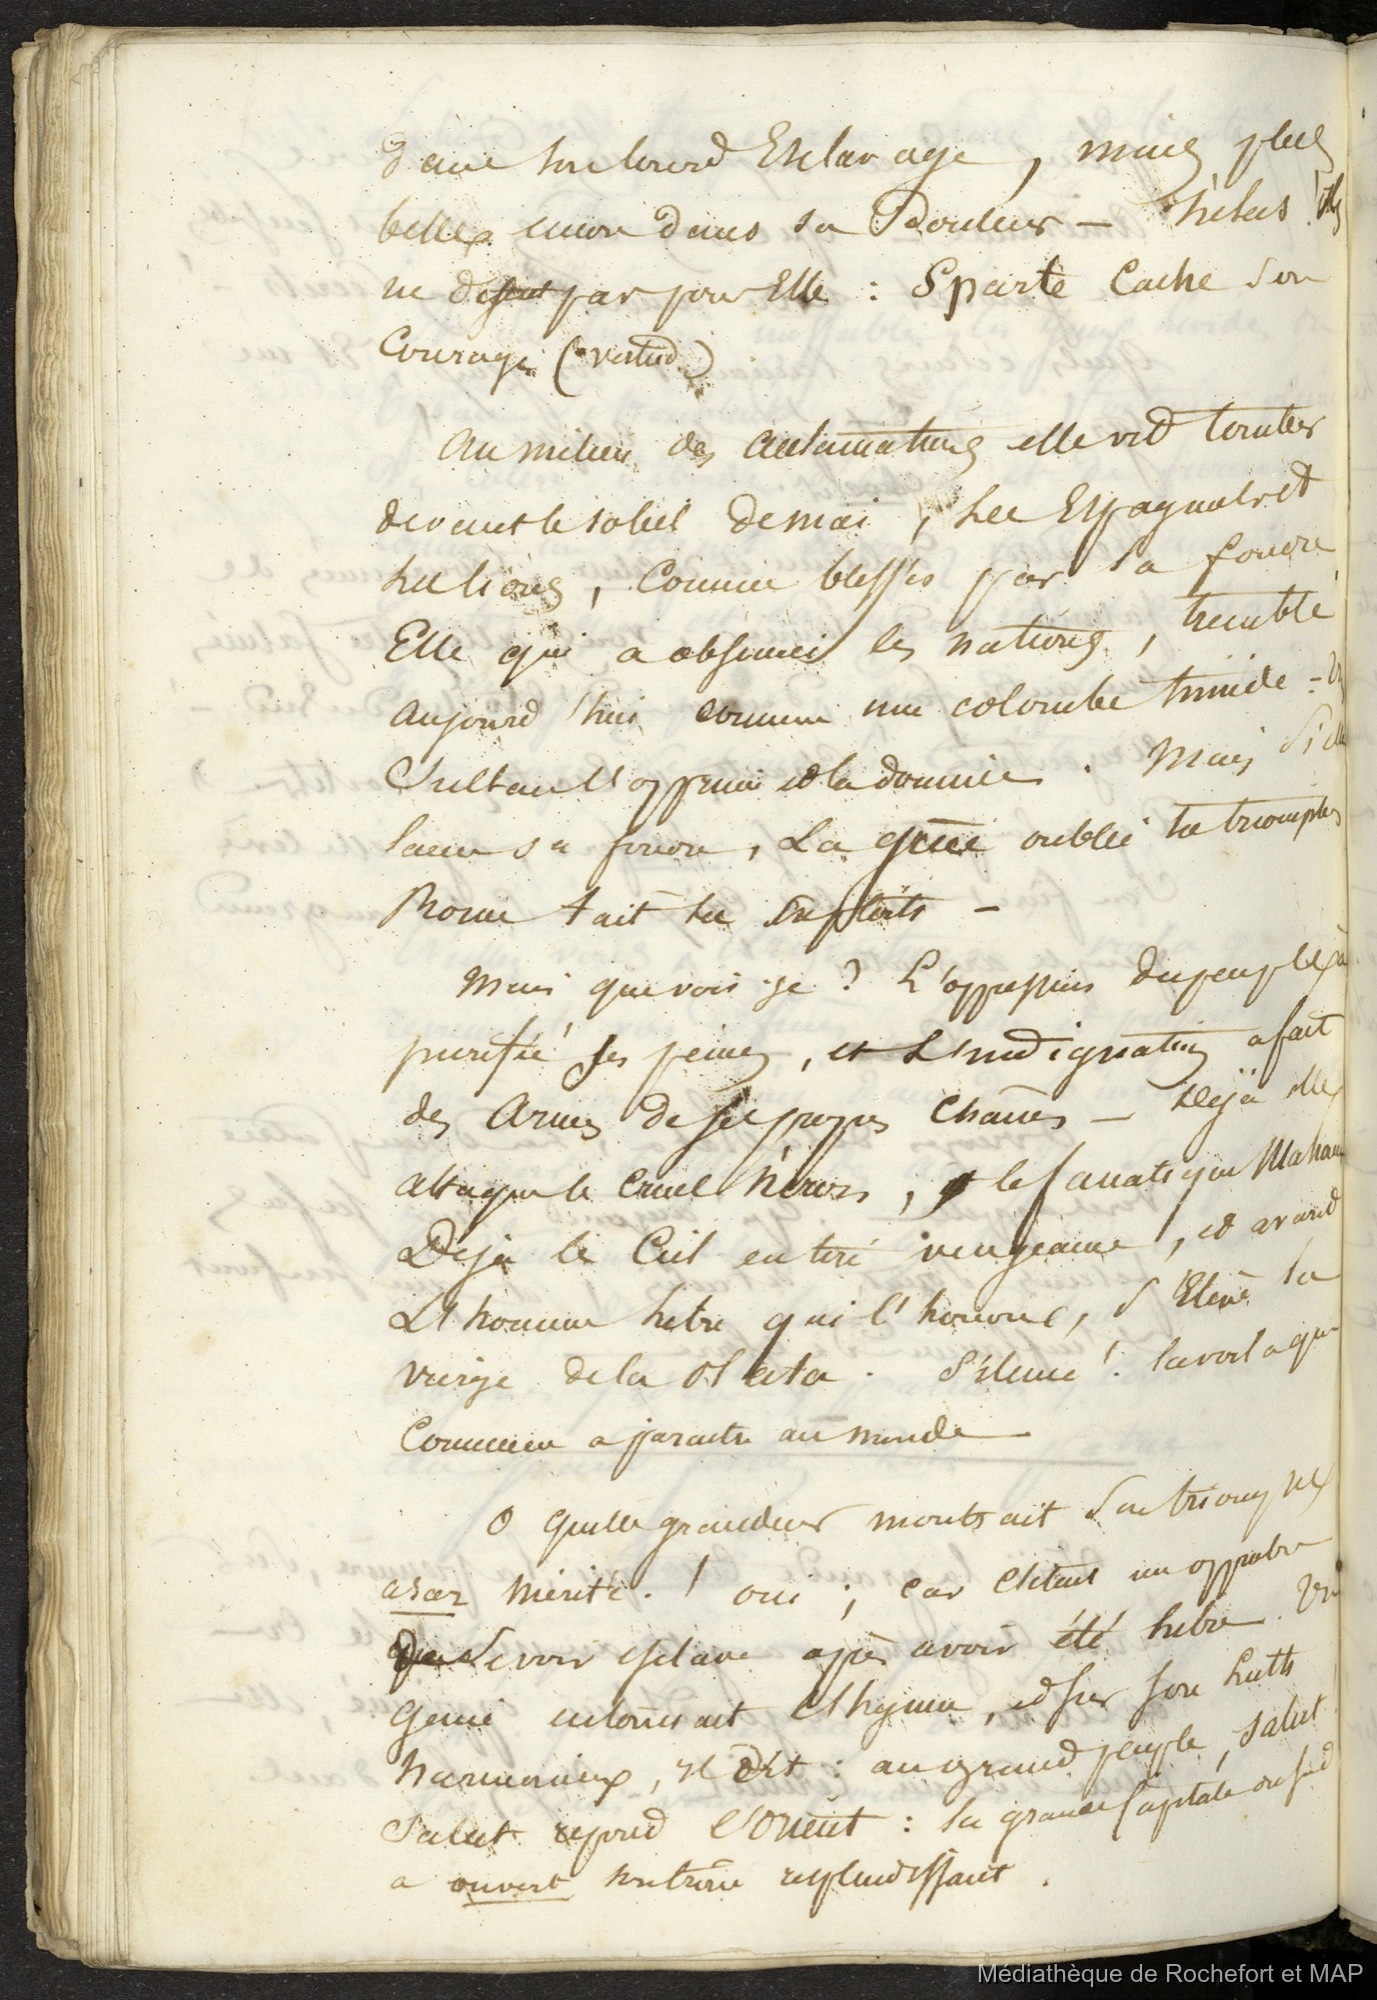 dans son lourd Esclavage, mais plus
belle encore dans sa Douleur – hélas! ils
ne disent pas pour Elle : Sparte Cache son
Courage (vertud)
Au milieu des acclamations elle vit tomber
devant le soleil de mai, les Espagnols et
les lions, Comme blessés par la foudre
Elle qui a les nations, tremble
aujourd'hui comme une colombe timide – Un
Sultan l'opprime et la domine. Mais si elle
lance sa foudre, La grèce oublie ses triomphes
Rome tait ses Exploits –
Mais que vois-je ? L'oppression du peuple a
purifié ses peines, et L'indignation a fait
des Armes de ses propres Chaines – déjà elle
attaque le cruel héros, le fanatique
Déja le Ciel en tire vengeance, et avant
L'homme libre qui l'honore, s'Elève la
vierge de la Plata. Silence! la voila qui
Commence a paraitre au monde –
O quelle grandeur montrait son triomphe
asaz mérité ! oui ; car C'était un opprobre
De se voir esclave après avoir été libre. Un
Génie entonnait L'hymne, et sur son Luth
harmonieux, il dit : au grand peuple, salut
Salut repond l'Orient : la grande Capitale du sud
a ouvert son trône resplendissant.
Médiathèque de Rochefort et MAP